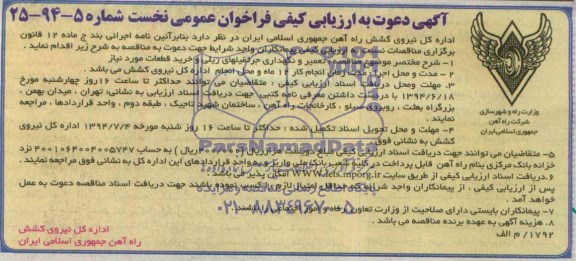 آگهی دعوت به ارزیابی کیفی فراخوان عمومی نخست شماره ۵-۹۴-۲۵
اداره کل نیروی کشش راه آهن جمهوری اسلامی ایران در نظر دارد بنابرآئین نامه اجرایی بند ج ماده ۱۲ قانون
برگزاری مناقصات نسبت به ارزیابی کیفی پیمانکاران واجد شرایط جهت دعوت به مناقصه به شرح زیر اقدام نماید.
۱- شرح مختصر موضوع مناقصه: تعمیر و نگهداری جرثقیلهای ریلی و خرید قطعات مورد نیاز
۲- مدت و محل اجرا: مدت زمان انجام کار ۱۲ ماه و محل انجام اداره کل نیروی کشش می باشد.
۳. مهلت ومحل دریافت اسناد ارزیابی کیفی: متقاضیان می توانند حداکثر تا ساعت ۱۶ روز چهارشنبه مورخ
۱۳۹۴/۶/۱۸ با در دست داشتن معرفی نامه کتبی جهت دریافت اسناد ارزیابی به نشانی: تهران، میدان بهمن،
بزرگراه بعثت، روبروی سیلو، کارخانجات راه آهن، ساختمان شهید تاجیک، طبقه دوم، واحد قراردادها، مراجعه
نمایند.
۴- مهلت و محل تحویل اسناد تکمیل شده: حداکثر تا ساعت ۱۶ روز شنبه مورخه ۱۳۹۴/۷/۴ اداره کل نیروی
کشش به نشانی فوق
وزارت راه و شهرسازی
شرکت راه آهن
جمهوری اسلامی ایران
ParsNamadData
۵- متقاضیان می توانند جهت دریافت اسناد ارزیابی کیفی مبلغ ریال) به حساب ۴۰۰۱۰۶۴۰۰۴۰۰۵۷۴۷ نزد
خزانه بانک مرکزی بنام راه آهن قابل پرداخت در کلیه شعب بانک ملی واریز و به واحد قراردادهای این اداره کل به نشانی فوق مراجعه نمایند.
۶. دریافت اسناد ارزیابی کیفی از طریق سایت www.iets.mporg.ir امکان پذیر می باشد.
پس از ارزیابی کیفی، از پیمانکاران واجد شرایط که حداقل امتیاز لازم را کسب نموده باشند جهت دریافت اسناد مناقصه دعوت به عمل
خواهد آمد.
۰۲۱-۸۸۳۴۹۶۷۰-۵
۷- پیمانکاران بایستی دارای صلاحیت از وزارت تعاون باشند
۸. هزینه آگهی به عهده برنده مناقصه می باشد.
۱۷۹۲/ م الف
اداره کل نیروی کشش
راه آهن جمهوری اسلامی ایران